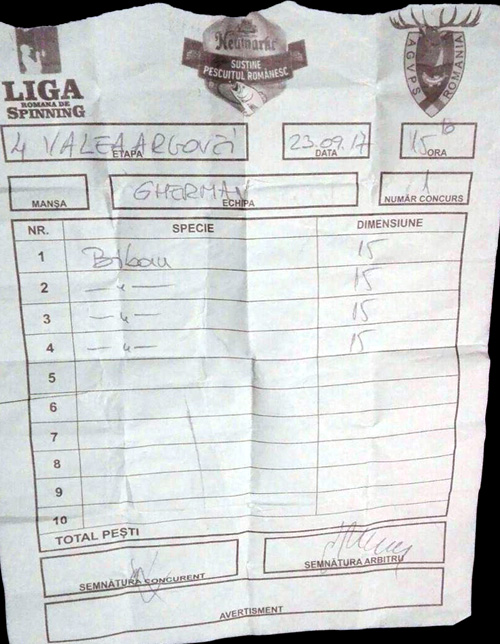 LIGA
ROMANA DE
SPINNING
Neumarkt
SUSȚINE
PESCUITUL ROMÂNESC
A.G.V.P.S. ROMANIA
4 VALEA ARGOVEI
ETAPA
23.09.17
DATA
15
ORA
MANȘA
GHERMAN
ECHIPA
1
NUMĂR CONCURS
NR. SPECIE DIMENSIUNE
1 Biban 15
2 —"— 15
3 —"— 15
4 —"— 15
5
6
7
8
9
10
TOTAL PEȘTI
SEMNĂTURA CONCURENT
SEMNĂTURA ARBITRU
AVERTISMENT